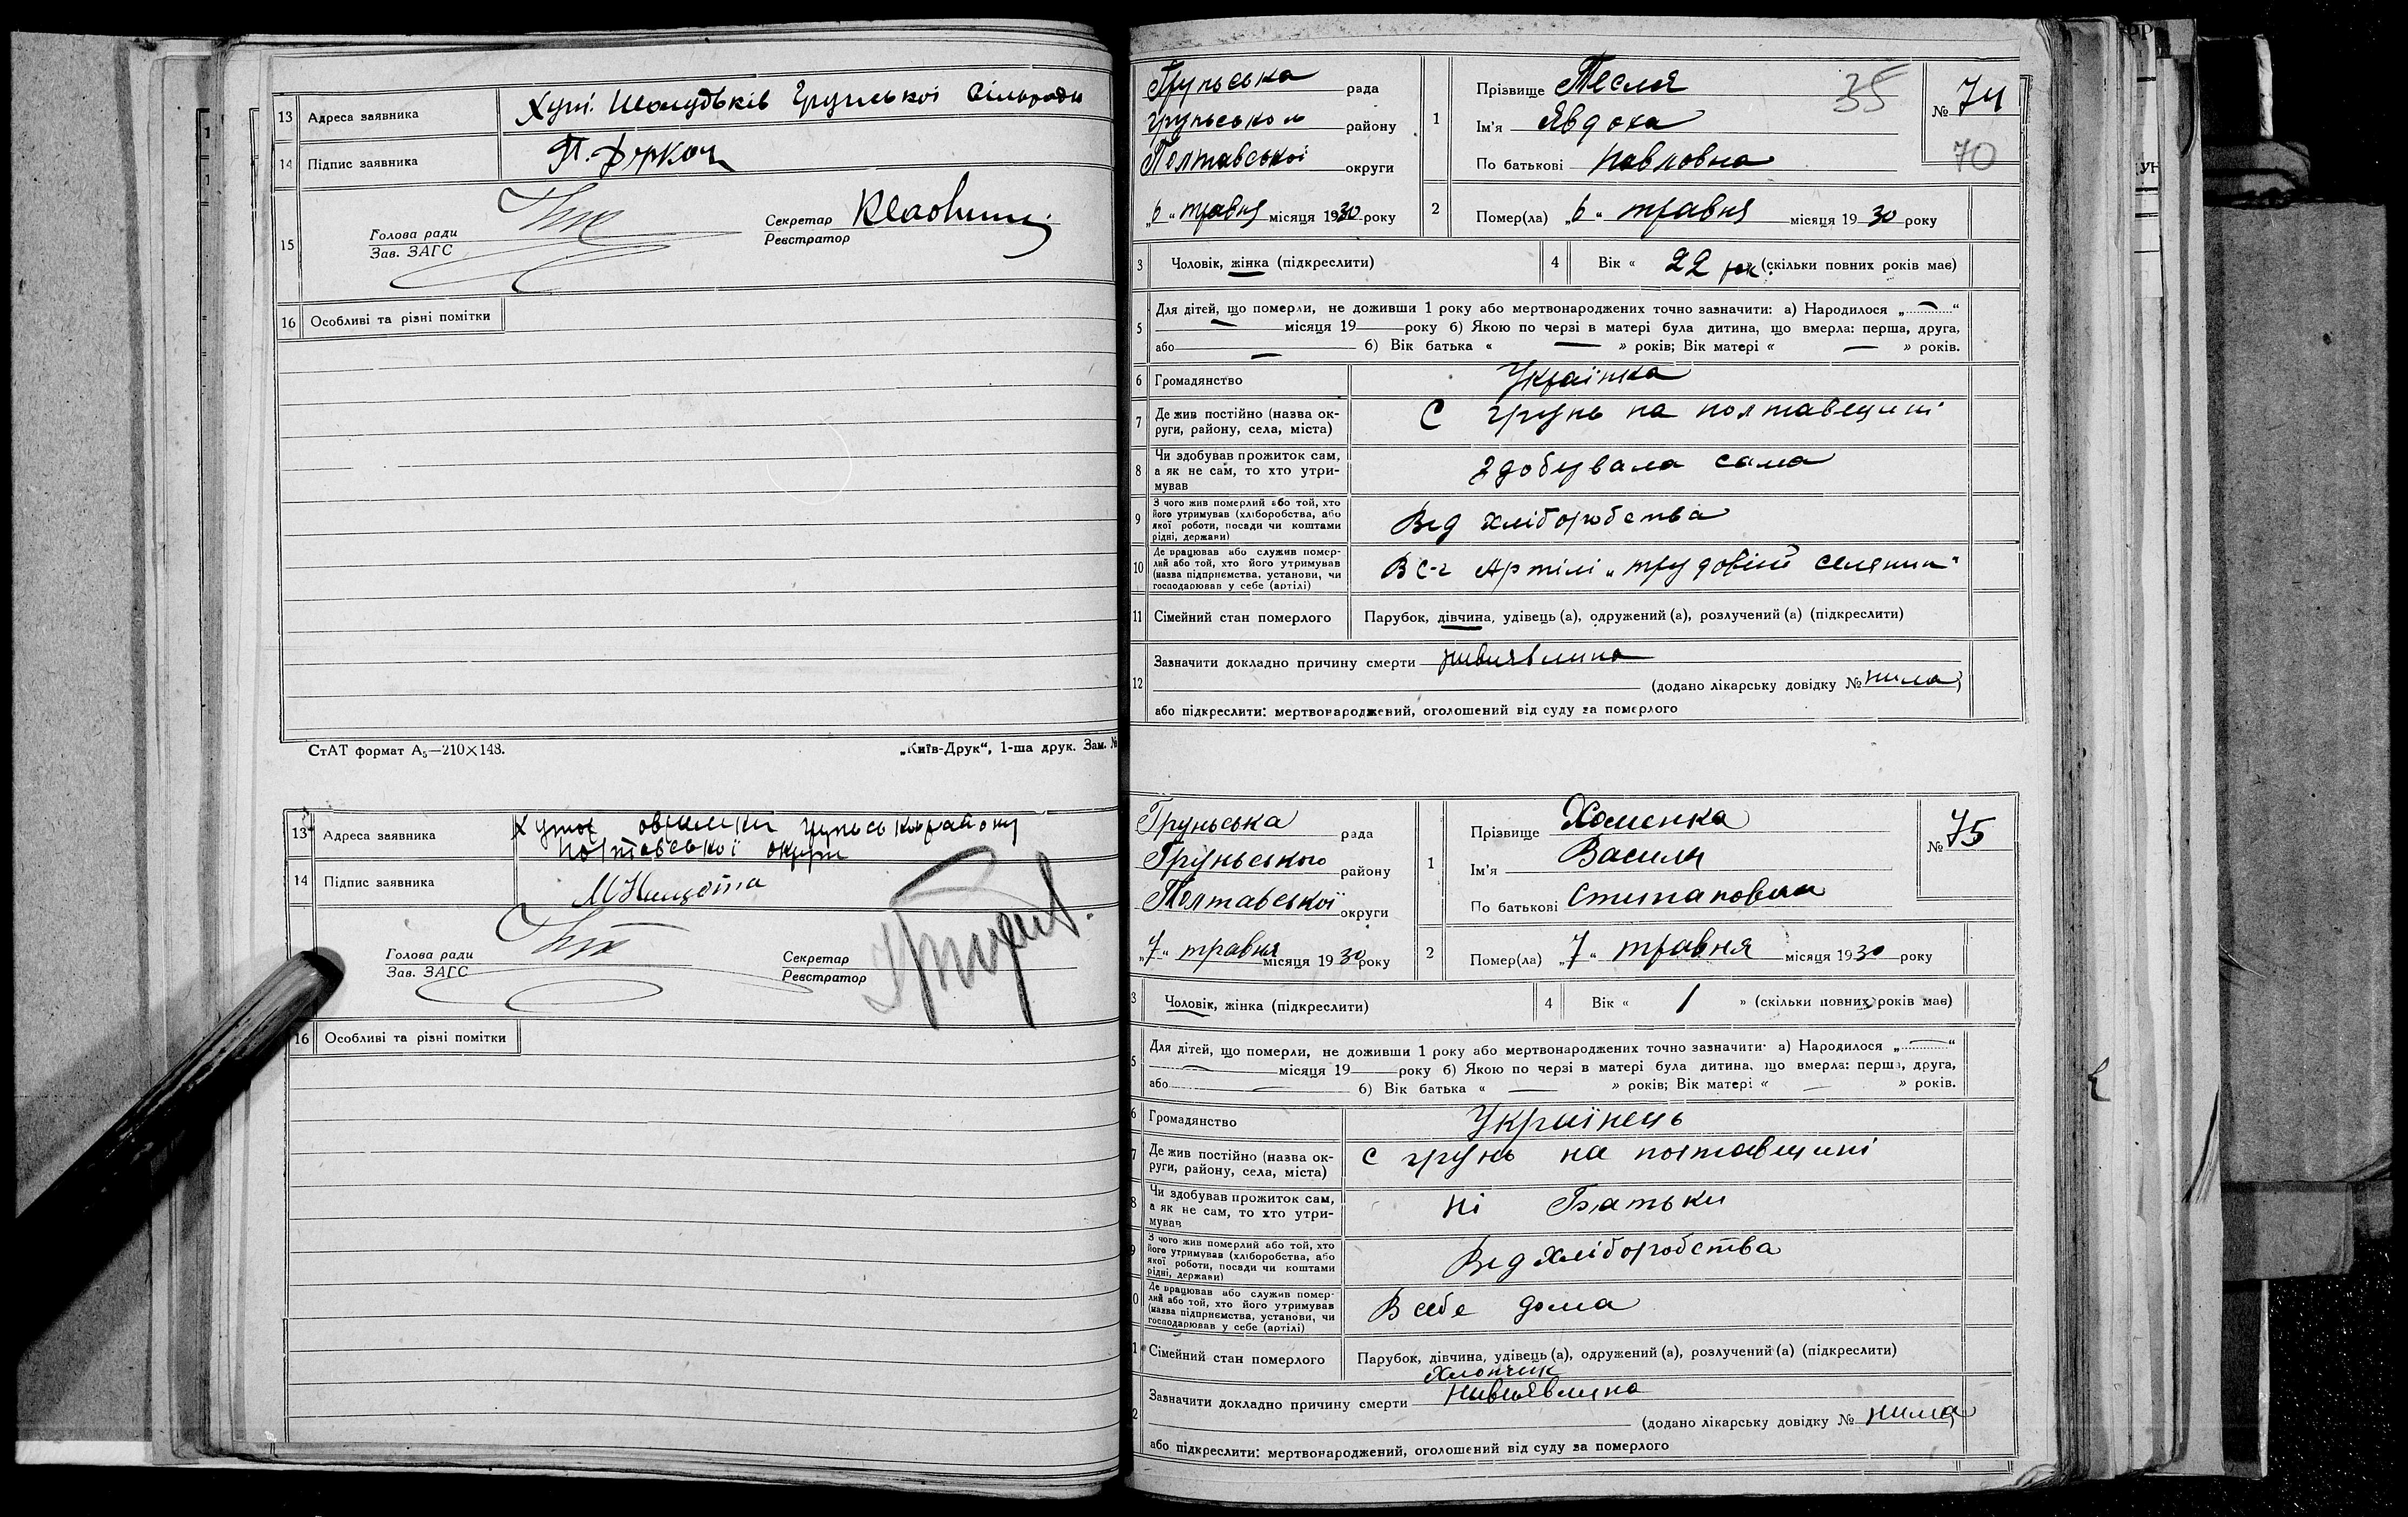 13 Адреса заявника Хут. Шолудьків Грунської сільради
14 Підпис заявника П. Деркач
15 Голова ради
Зав. ЗАГС
Секретар
Реєстратор
16 Особливі та різні помітки
СтАТ формат А₅—210×148. „Київ-Друк“, 1-ша друк. Зам. №
13 Адреса заявника Хутор груньськ району
Полтавської округи
14 Підпис заявника
Голова ради
Зав. ЗАГС
Секретар
Реєстратор
16 Особливі та різні помітки
Груньська рада
груньського району
Полтавської округи
„6“ травня місяця 1930 року
1 Прізвище Тесля 35
Ім'я Явдоха
По батькові Павловна
№ 74
70
2 Помер(ла) „6“ травня місяця 19 30 року
3 Чоловік, жінка (підкреслити) 4 Вік « 22 рок. (скільки повних років має)
5 Для дітей, що померли, не доживши 1 року або мертвонароджених точно зазначити: а) Народилося „ — “
— місяця 19 — року б) Якою по черзі в матері була дитина, що вмерла: перша, друга,
або — 6) Вік батька « — » років; Вік матері « — » років.
6 Громадянство Українка
7 Де жив постійно (назва ок-
руги, району, села, міста) С грунь на полтавщині
8 Чи здобував прожиток сам,
а як не сам, то хто утри-
мував здобувала сама
9 З чого жив померлий або той, хто
його утримував (хліборобства, або
якої роботи, посади чи коштами
рідні, держави) Від хліборобства
10 Де працював або служив помер-
лий або той, хто його утримував
(назва підприємства, установи, чи
господарював у себе (артілі) В с-г Артілі „трудовій селянин“
11 Сімейний стан померлого Парубок, дівчина, удівець (а), одружений (а), розлучений (а) (підкреслити)
12 Зазначити докладно причину смерти нивиявлина
(додано лікарську довідку № нима)
або підкреслити: мертвонароджений, оголошений від суду за померлого
Груньська рада
Груньського району
Полтавської округи
„7“ травня місяця 19 30 року
1 Прізвище Хоменка
Ім'я Василя
По батькові Стипанович
№ 75
2 Помер(ла) „7“ травня місяця 1930 року
3 Чоловік, жінка (підкреслити) 4 Вік « 1 » (скільки повних років має)
5 Для дітей, що померли, не доживши 1 року або мертвонароджених точно зазначити: а) Народилося „ — “
— місяця 19 — року б) Якою по черзі в матері була дитина, що вмерла: перша, друга,
або — 6) Вік батька « — » років; Вік матері « — » років.
6 Громадянство Українець
7 Де жив постійно (назва ок-
руги, району, села, міста) С грунь на полтавщині
8 Чи здобував прожиток сам,
а як не сам, то хто утри-
мував Ні Батьки
9 З чого жив померлий або той, хто
його утримував (хліборобства, або
якої роботи, посади чи коштами
рідні, держави) Від хліборобства
0 Де працював або служив помер-
лий або той, хто його утримував
(назва підприємства, установи, чи
господарював у себе (артілі) В себе дома
1 Сімейний стан померлого Парубок, дівчина, удівець (а), одружений (а), розлучений (а) (підкреслити)
Хлопчик
2 Зазначити докладно причину смерти нивиявлина
(додано лікарську довідку № нима)
або підкреслити: мертвонароджений, оголошений від суду за померлого